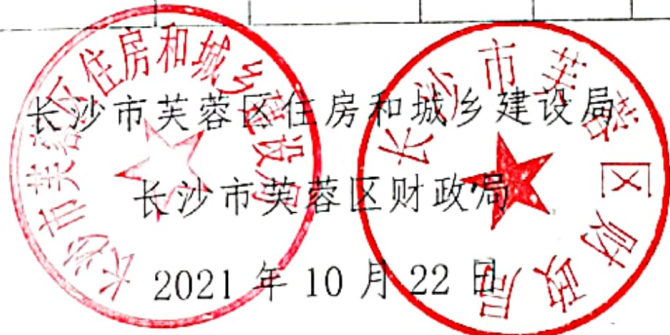 长沙市芙蓉区住房和城乡建设局
长沙市芙蓉区财政局
2021年10月22日
长沙市芙蓉区住房和城乡建设局
长沙市芙蓉区财政局